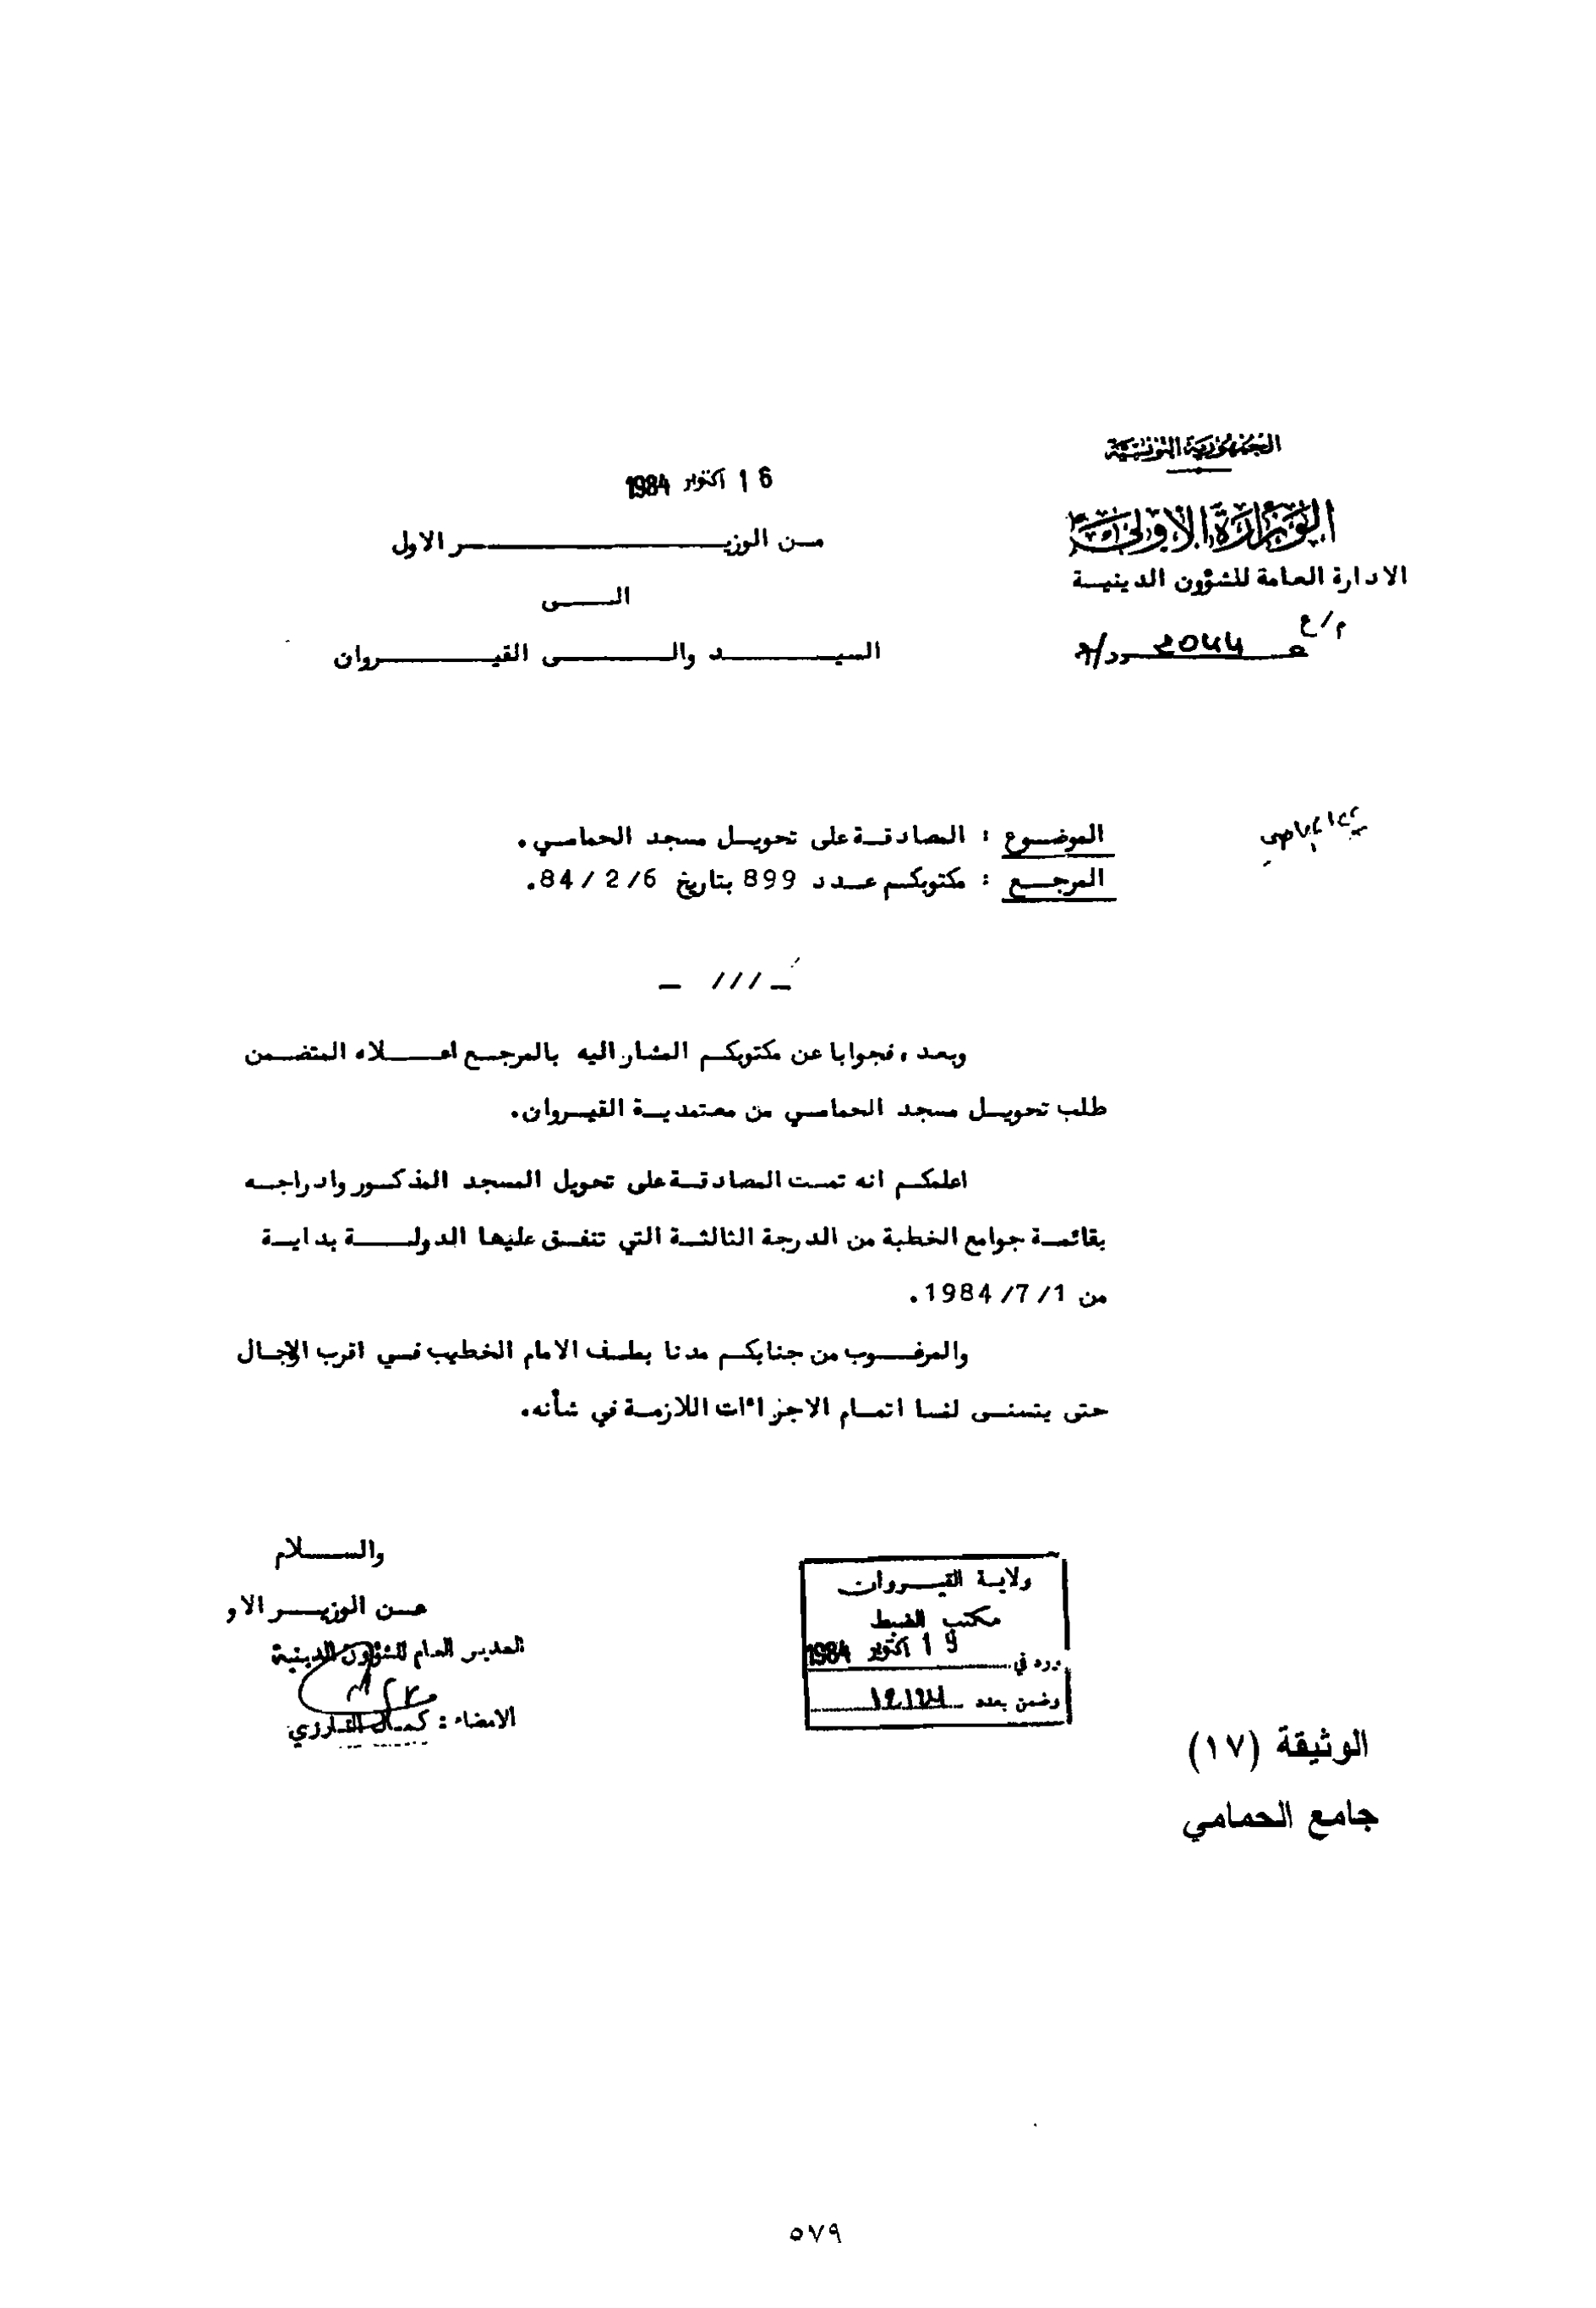 الجمهورية التونسية
الوزارة الاولى
الادارة العامة للشؤون الدينية
م/ع
16 اكتوبر 1984
من الوزير الاول
الى
السيد والى القيروان
الموضوع : المصادقة على تحويل مسجد الحمامي.
المرجع : مكتوبكم عدد 899 بتاريخ 6/2/84.
- /// -
وبعد ، فجوابا عن مكتوبكم المشار اليه بالمرجع اعلاه المتضمن
طلب تحويل مسجد الحمامي من معتمدية القيروان.
اعلمكم انه تمت المصادقة على تحويل المسجد المذكور وادراجه
بقائمة جوامع الخطبة من الدرجة الثالثة التي تنفق عليها الدولة بداية
من 1/7/1984.
والمرغوب من جنابكم مدنا بملف الامام الخطيب في اقرب الاجال
حتى يتسنى لنا اتمام الاجراءات اللازمة في شأنه.
والسلام
عن الوزير الاو
المدير العام للشؤون الدينية
الامضاء : كمال التارزي
ولاية القيروان
مكتب الضبط
ورد في 19 اكتوبر 1984
وضمن بعدد
الوثيقة (١٧)
جامع الحمامي
٥٧٩